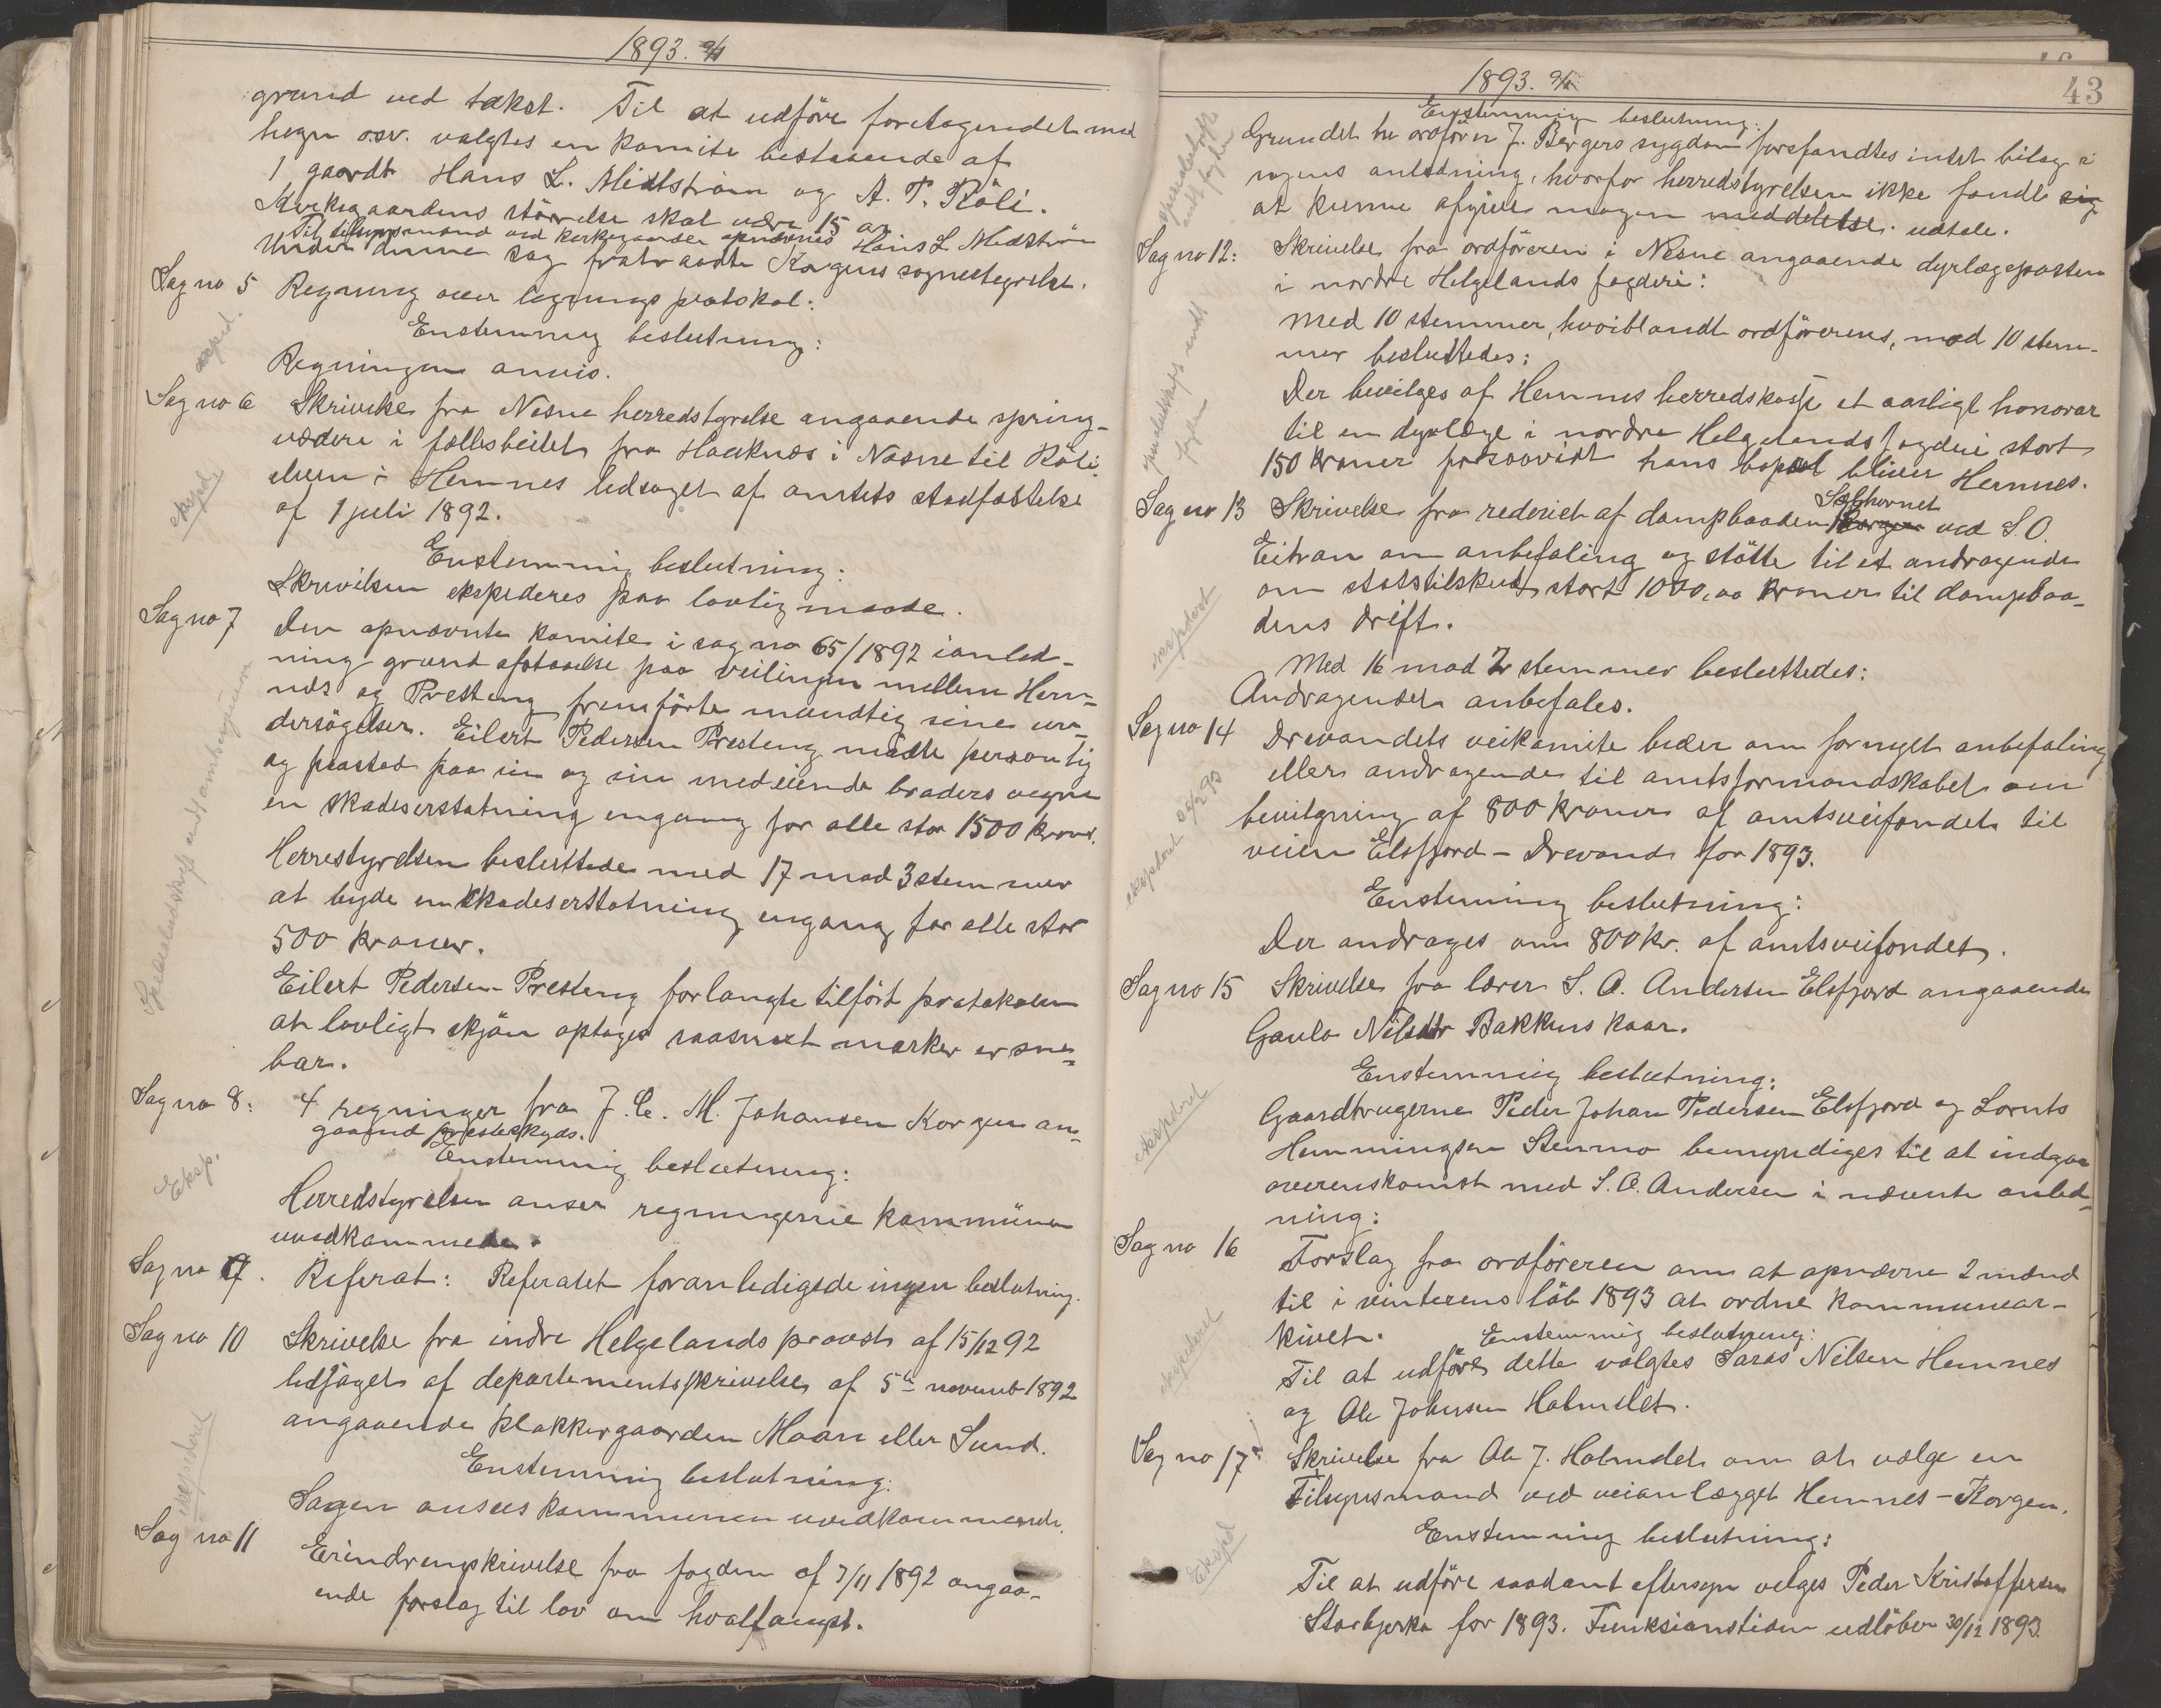 1893. 9/1
grund ved takst. Til at udföre foretagendet med
hegn osv. valgtes en komite bestaaende af
1 gaardb Hans L. Midtström og A. T. Röli.
Kirkegaardens större­lse skal være 15 ar
Til tilsynsmand ved kirkegaarden opnævnes Hans L Midtström
Under denne sag fratraadte Korgens sognestyrelse.
Sag no 5 Regning over ligningsprotokol:
Enstemmig beslutning:
eksped.
Regningen anvis.
Sag no 6 Skrivelse fra Nesne herredstyrelse angaaende spring-
vædere i fællesbeitet fra Hauknes i Nesne til Röli
elven i Hemnes ledsaget af amtets stadfæstelse
eksped
af 1 juli 1892.
Enstemmig beslutning:
Skrivelsen ekspederes paa lovlig maade.
Sag no 7 Den opnævnte komite i sag no 65/1892 i anled-
ning grund afstaaelse paa veilinjen mellem Hem-
nes og Presteng fremförte mundtlig sine un-
dersögelser. Eilert Pedersen Presteng mödte personlig
og paastod paa sin og sin medeiende broders vegne
en skadeserstatning engang for alle stor 1500 kroner.
Herrestyrelsen besluttede med 17 mod 3 stemmer
at byde en skadeserstatning engang for alle stor
500 kroner.
Eilert Pedersen Presteng forlangte tilfört protokolen
at lovligt skjön optages saasnart marken er sne-
bar.
Sag no 8: 4 regninger fra J. C. M. Johansen Korgen an-
gaaend presteskyds.
Enstemmig beslutning:
Eksp.
Herredstyrelsen anser regningerne kommunen
uvedkommede.
Sag no 9. Referat: Referatet foranledigede ingen beslutning.
Sag no 10 Skrivelse fra indre Helgelands provst af 15/12 92
ledsaget af departementsskrivelse af 5te novemb 1892
angaaende klokkergaarden Moan eller Sund.
Enstemmig beslutning:
ekspederet
Sagen ansees kommunen uvedkommende.
Sag no 11 Erindringskrivelse fra fogden af 7/11 1892 angaa-
ende forslag til lov om hvalfangst.
1893. 9/1
43
Enstemmig beslutning:
Grundet hr ordförer J. Bergers sygdom forefandtes intet bilag i
sagens anledning, hvorfor herredstyrelsen ikke fandt sig
at kunne afgive nogen meddelelse. udtale.
Sag no 12: Skrivelse fra ordföreren i Nesne angaaende dyrlægeposten
i nordre Helgelands fogderi:
Med 10 stemmer, hvoriblandt ordförerens, mod 10 stem-
mer besluttedes:
Der bevilges af Hemnes herredskasse et aarligt honorar
til en dyrlæge i nordre Helgelands fogderi stort
150 kroner forsaavidt hans bopæl bliver Hemnes.
Sag no 13 Skrivelse fra rederiet af dampbaaden Korgen Sølghornet ved S. O.
Eitran om anbefaling og stötte til et andragende
om statstilskud stort 1000,00 kroner til dampbaa-
dens drift.
Med 16 mod 2 stemmer besluttedes:
Andragendet anbefales.
Sag no 14 Drevandets veikomite beder om fornyet anbefaling
eller andragende til amtsformandskabet om
bevilgning af 800 kroner af amtsveifondet til
veien Elsfjord – Drevand for 1893.
Enstemmig beslutning:
Der andrages om 800 kr. af amtsveifondet.
Sag no 15 Skrivelse fra lærer S. A. Andersen Elsfjord angaaende
Nilsdtr Bakkens kaar.
Enstemmig beslutning:
ekspederet
Gaardbrugerne Peder Johan Pedersen Elsfjord og Lornts
Hemmingsen Stenmo bemyndiges til at indgaa
overenskomst med S. A. Andersen i nævnte anled-
ning:
Sag no 16 Forslag fra ordföreren om at opnævne 2 mænd
til i vinterens löb 1893 at ordne kommunear-
kivet.
Enstemmig beslutning:
ekspederet
Til at udföre dette valgtes Saras Nilsen Hemnes
og Ole Johnsen Holmslet.
Sag no 17 Skrivelse fra Ole J. Holmslet om at vælge en
Tilsynsmand ved veianlægget Hemnes – Korgen.
Enstemmig beslutning:
Eksped
Til at udföre saadant eftersyn velges Peder Kristoffersen
Storbjerka for 1893. Funksionstiden udlöber 30/12 1893.